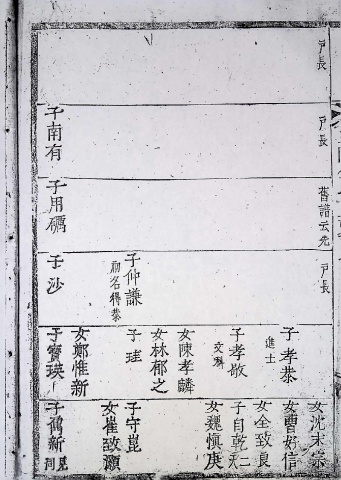 戶長
戶長
子南有
舊譜云允
子用礪
戶長
子仲謙
初名得恭
子沙
子孝恭
進士
子孝敬
文科
女陳孝麟
女林郁之
子珪
女鄭惟新
子寶瑛
女沈末宗
女曹好信
女全致良
子自乾
女魏愼庚
子守崑
女崔致灝
子鶴新